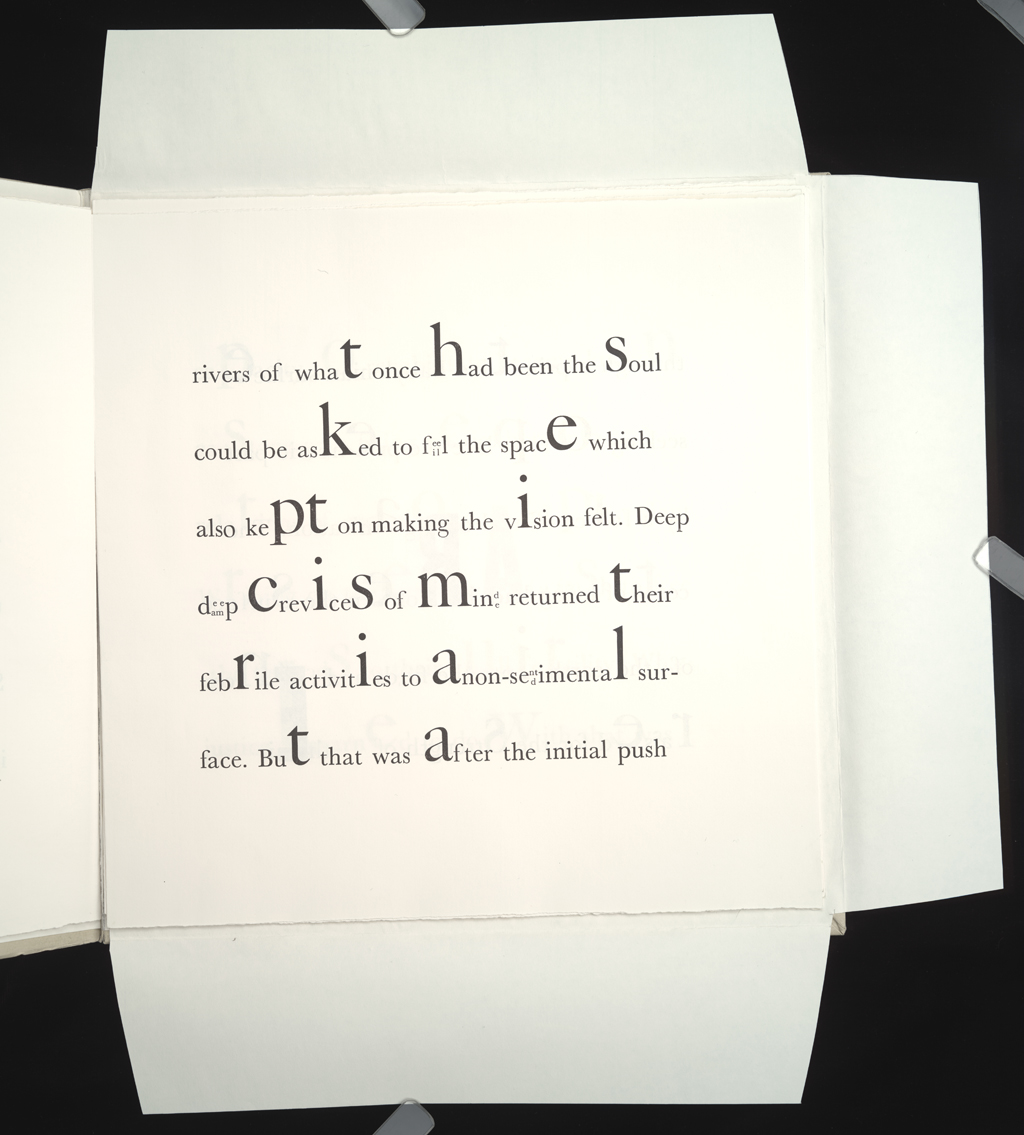 rivers of what once had been the Soul
could be asked to feel the space which
also kept on making the vision felt. Deep
deep Crevices of mind returned their
febrile activities to anon-sentimental sur-
face. But that was after the initial push